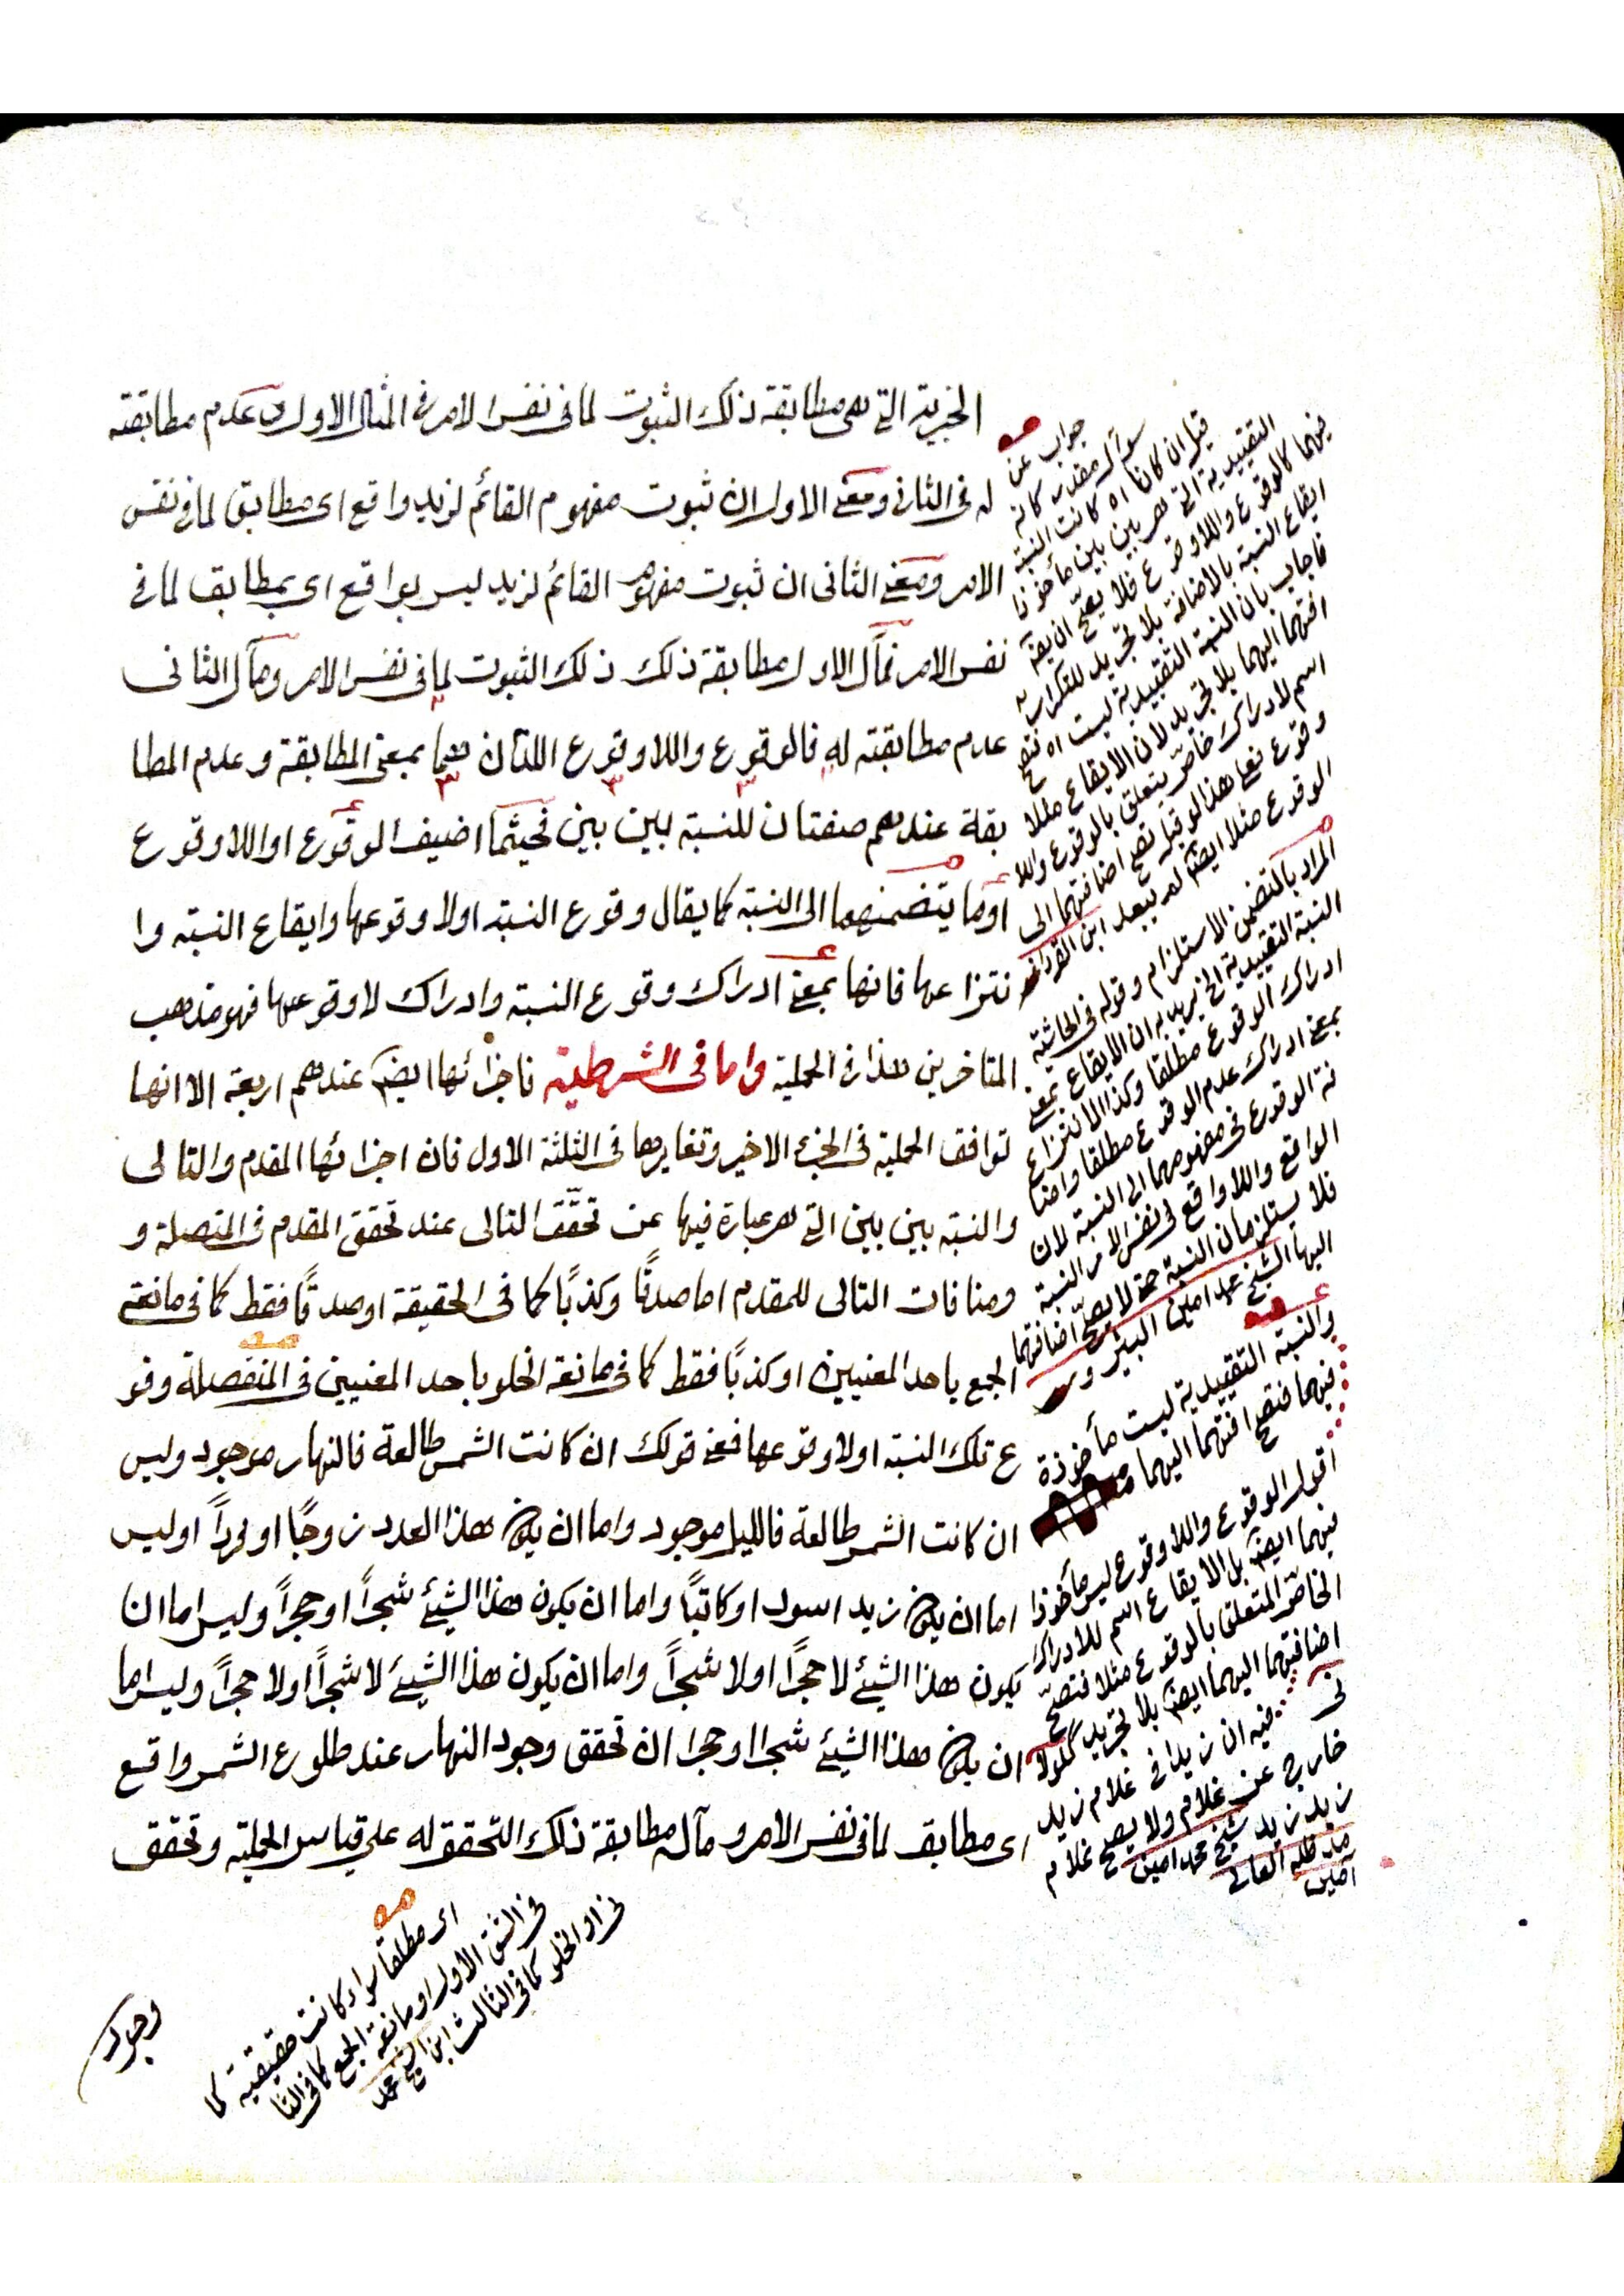 الخبرية التى هى مطابقة ذلك الثبوت لما فى نفس الامر فى المثال الاول وعدم مطابقته
له فى الثانى ومعنى الاول ان ثبوت مفهوم القائم لزيد واقع اى مطابق لما فى نفس
الامر ومعنى الثانى ان ثبوت مفهوم القائم لزيد ليس بواقع اى بمطابق لما فى
نفس الامر فمآل الاول مطابقة ذلك ذلك الثبوت لما فى نفس الامر ومآل الثانى
عدم مطابقته له فالوقوع واللاوقوع اللتان هما بمعنى المطابقة وعدم المطا
بقة عندهم صفتان للنسبة بين بين فحيثما اضيف الوقوع او اللاوقوع
او ما يتضمنهما الى النسبة كما يقال وقوع النسبة اولا وقوعها وايقاع النسبة وا
نتزاعها فانها بمعنى ادراك وقوع النسبة وادراك لا وقوعها فهو مذهب
المتاخرين هذا فى الحملية واما فى الشرطية فاجزائها ايضا عندهم اربعة الا انها
توافق الحملية فى الجزء الاخير وتغايرها فى الثلثة الاول فان اجزائها المقدم والتالى
والنسبة بين بين التى هى عبارة فيها عن تحقّق التالى عند تحقق المقدم فى المتصلة و
ومنافات التالى للمقدم اما صدقًا وكذبًا كما فى الحقيقة او صدقًا فقط كما فى مانعة
الجمع باحد المعنيين او كذبًا فقط كما فى مانعة الخلو باحد المعنيين فى المنفصلة وقو
ع تلك النسبة اولا وقوعها فمعنى قولك ان كانت الشمس طالعة فالنهار موجود وليس
ان كانت الشمس طالعة فالليل موجود واما ان يكون هذا العدد زوجًا او فردًا اوليس
اما ان يكون زيد اسود او كاتبًا واما ان يكون هذا الشيئ شجرًا او حجرًا وليس اما ان
يكون هذا الشيئ لا حجرًا اولا شجرًا واما ان يكون هذا الشيئ لا شجرًا اولا حجرًا وليس اما
ان يكون هذا الشيئ شجرا او حجرا ان تحقق وجود النهار عند طلوع الشمس واقع
اى مطابق لما فى نفس الامر ومآله مطابقة ذلك التحقق له على قياس الحملية وتحقق
وجود
جواب عن
سوآل مقدر كانه
قيل ان كانا اه كانت النسبة
التقييدية التى هى بين بين مأخوذا
فيهما كالوقوع واللاوقوع فلا يصح ان يقع
ايقاع النسبة بالاضافة بلا تجريد للتكرار
فاجاب بان النسبة التقييدية ليست اه فتصح
اضافتهما اليهما بلا تجريد لان الايقاع مثلا
اسم لادراك خاصّ يتعلق بالوقوع واللا
وقوع فعلى هذا لو قيل تصح اضافتهما الى
الوقوع مثلا ايضا لم يبعد ابن القرداغى
المراد بالمتضمن الاستلزام وقوله فى الحاشية
النسبة التقييدية الخ يريد به ان الايقاع بمعنى
ادراك الوقوع مطلقا وكذا الانتزاع
بمعنى ادراك عدم الوقوع مطلقا واضا
فة الوقوع فى مفهومهما الى النسبة لان
الواقع واللاواقع فى نفس الامر النسبة
فلا يستلزمان النسبة حتى لا يصحّ اضافتهما
اليها الشيخ محمد امين
والنسبة التقييدية ليست مأخوذة
فيهما فتصح اضافتهما اليهما
اقول الوقوع واللاوقوع ليس مأخوذا
فيهما ايضا بل الايقاع اسم للادراك
الخاصّ المتعلق بالوقوع مثلا فتصحّ
اضافتهما اليهما ايضا بلا تجريد
فيه ان زيدا فى غلام زيد
خارج عن غلام ولا يصح غلام
زيد زيد شيخ محمد امين
مد ظله العالى
آمين
اى مطلقا سواء كانت حقيقية كما
فى الشق الاول او مانعة الجمع كما فى الثا
نى او الخلو كما فى الثالث ابن الشيخ محمد